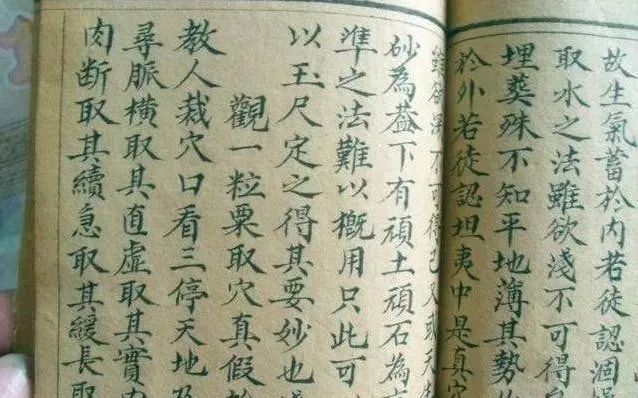 故生氣蓄於內若徒認涸
取水之法雖欲淺不可得
埋葬殊不知平地薄其勢
於外若徒認坦夷中是真穴
欲深不可得已又或天生
砂為蓋下有頑土頑石為
準之法難以概用只此可
以玉尺定之得其要妙也
觀一粒粟取穴真假於
教人裁穴口看三停天地及
尋脈橫取其直虛取其實
肉斷取其續急取其緩長取